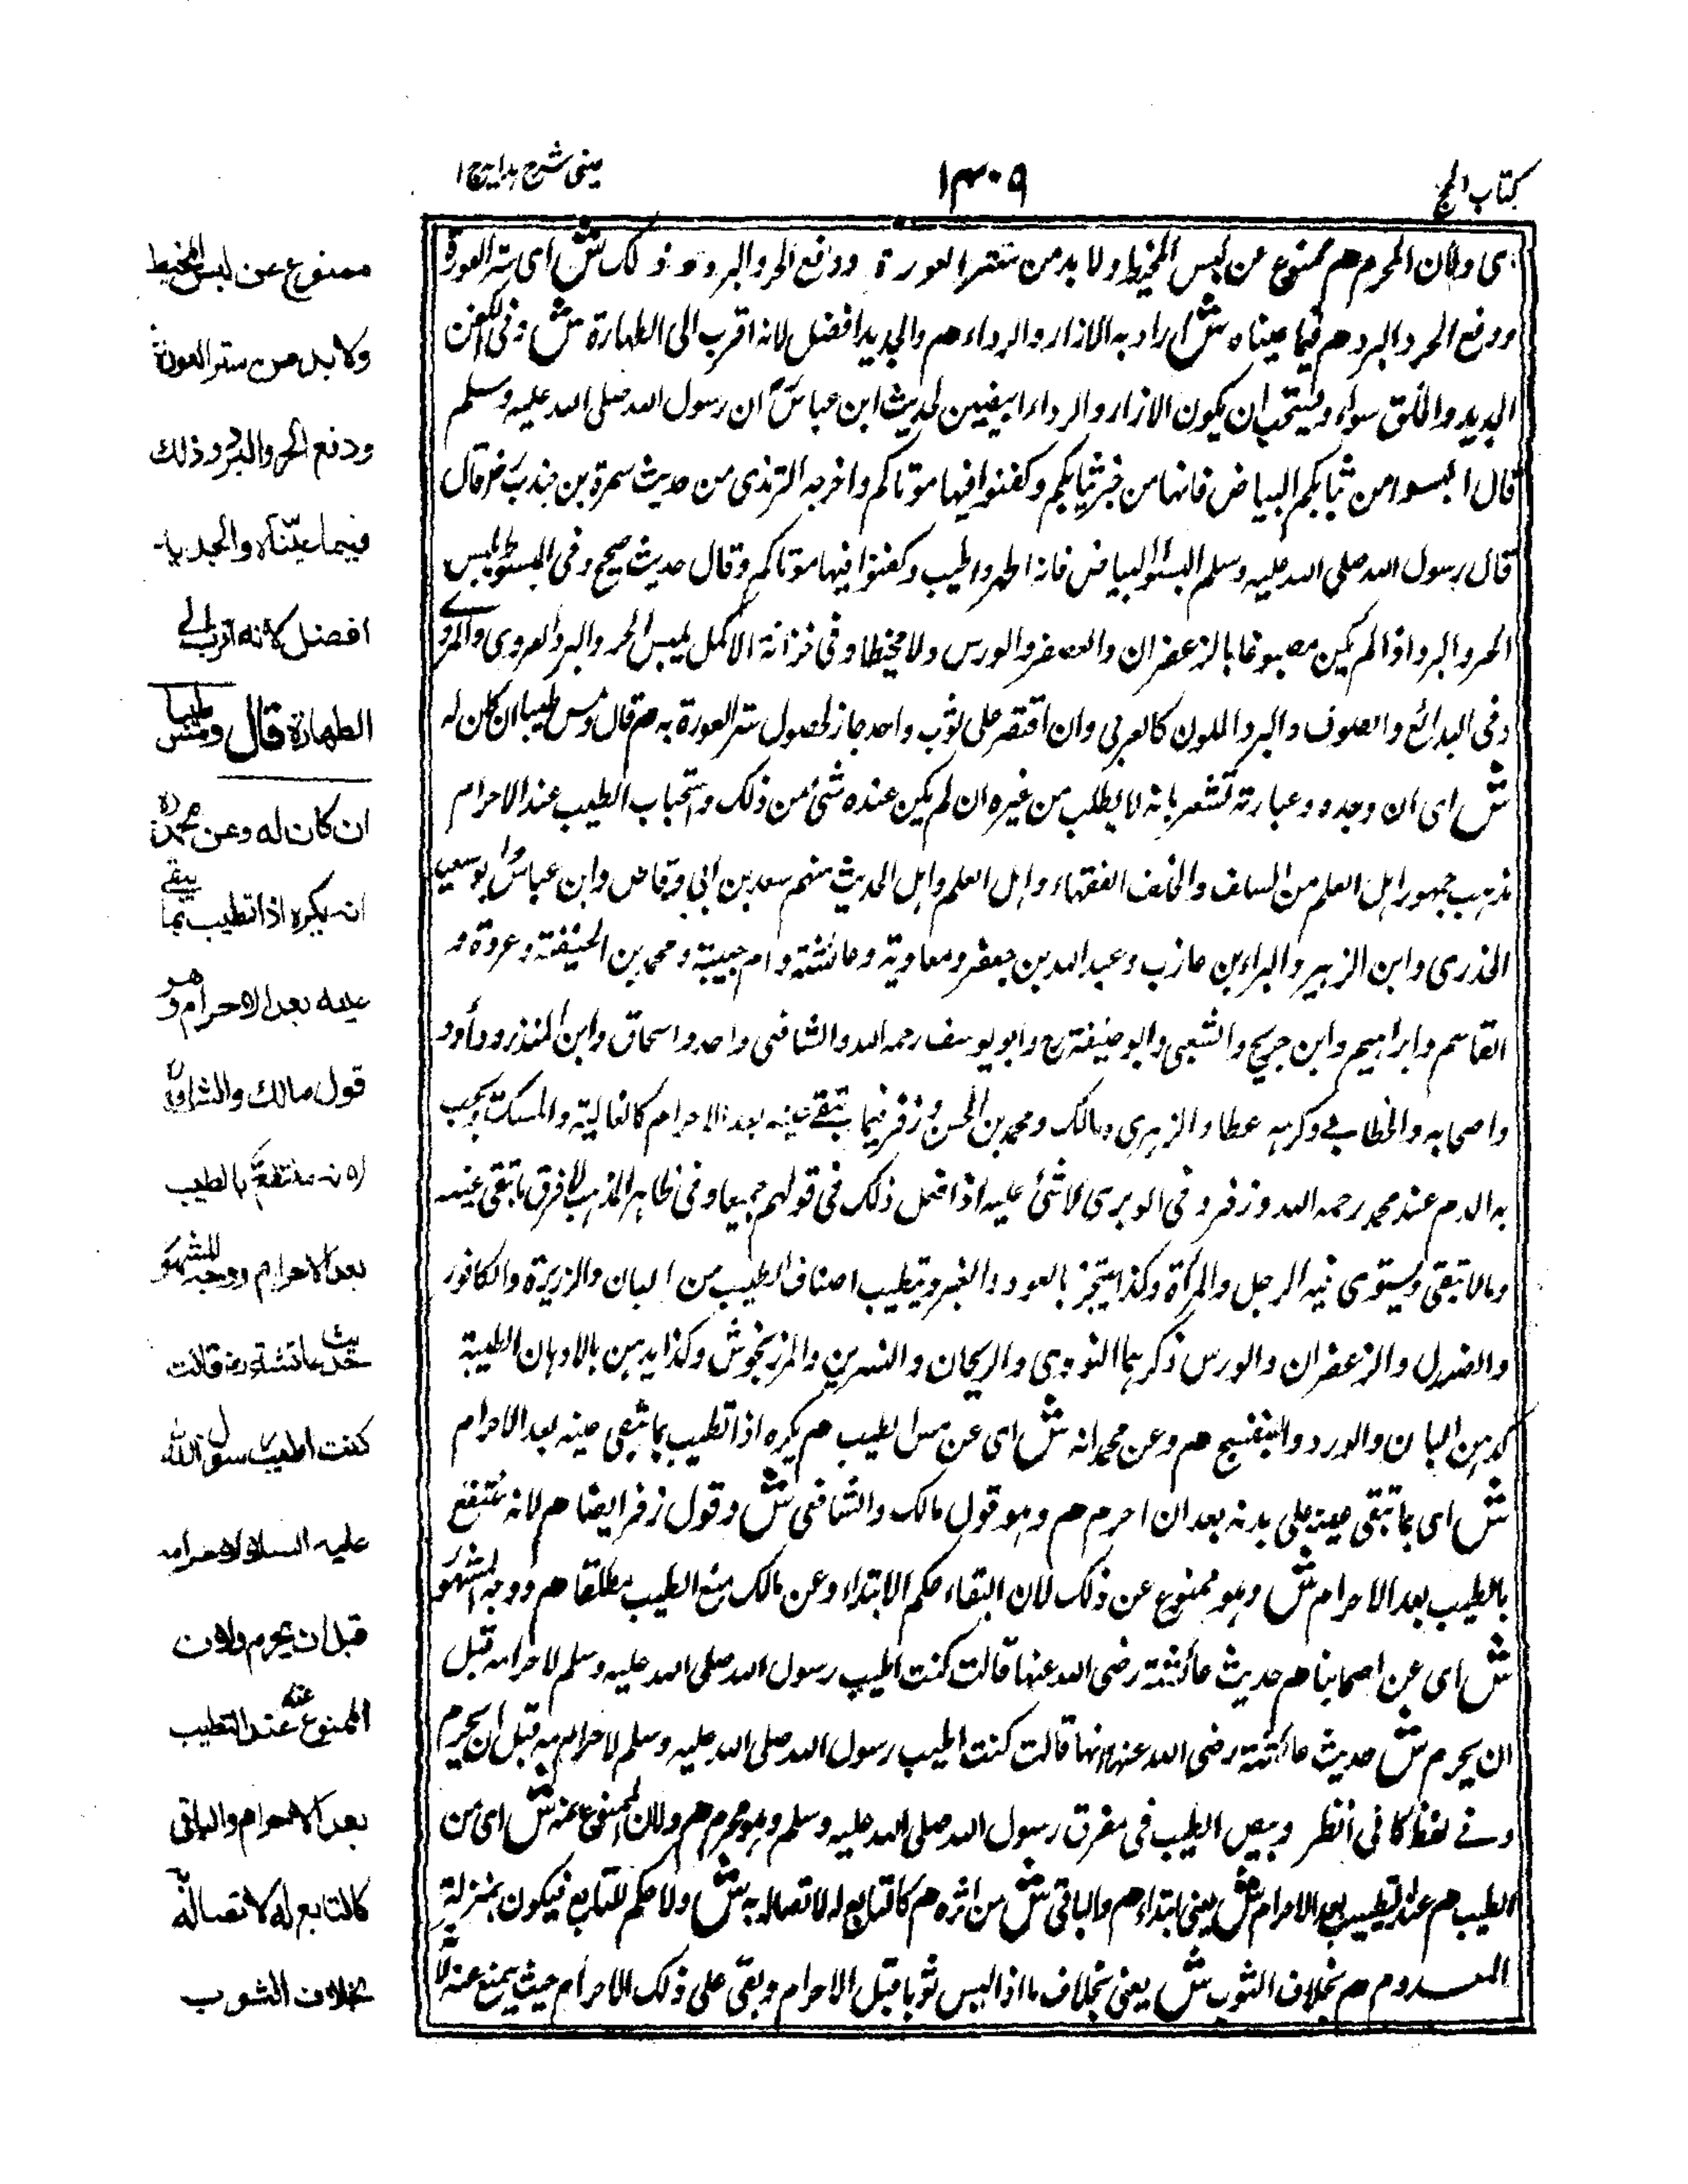 كتاب الحج
١٣٠٩
عينى شرح هدايه ج١
ى ولان المحرم هم ممنوع عن لبس المخيط ولا بد من ستر العورة ودفع الحر والبرد وذلك ش اى ستر العورة
ودفع الحر والبرد هم فيما عيناه ش اراد به الازار والرداء هم والجديد افضل لانه اقرب الى الطهارة ش وفى الكفن
الجديد والخلق سواء ويستحب ان يكون الازار والرداء ابيضين لحديث ابن عباس ان رسول الله صلى الله عليه وسلم
قال البسوا من ثيابكم البياض فانها من خير ثيابكم وكفنوا فيها موتاكم واخرجه الترمذى من حديث سمرة بن جندب رض قال
قال رسول الله صلى الله عليه وسلم البسوا البياض فانه اطهر واطيب وكفنوا فيها موتاكم وقال حديث صحيح وفى المبسوط يلبس
الحر والبرد اذا لم يكن مصبوغا بالزعفران والعصفر والورس ولا مخيطا وفى خزانة الاكمل يلبس الحر والبرد العروى والمروى
وفى البدائع والصوف والبرد الملون كالعربى وان اقتصر على ثوب واحد جاز لحصول ستر العورة به هم قال ومس طيبا ان كان له
ش اى ان وجده وعبارته تشعر بانه لا يطلب من غيره ان لم يكن عنده شئ من ذلك واستحباب الطيب عند الاحرام
مذهب جمهور اهل العلم من السلف والخلف الفقهاء واهل العلم واهل الحديث منهم سعد بن ابى وقاص وابن عباس وابو سعيد
الخدرى وابن الزبير والبراء بن عازب وعبد الله بن جعفر ومعاوية وعائشة وام حبيبة ومحمد بن الحنيفة وعروة و
القاسم وابراهيم وابن جريج والشعبى وابو حنيفة رح وابو يوسف رحمه الله والشافعى واحمد واسحاق وابن المنذر وداود
واصحابه والخطابى وكرهه عطاء والزهرى ومالك ومحمد بن الحسن وزفر فيما تبقى عينه بعد الاحرام كالغالية والمسك ويجب
به الدم عند محمد رحمه الله وزفر وفى الوبرى لا شئ عليه اذا فعل ذلك فى قولهم جميعا وفى ظاهر المذهب لا فرق ما تبقى عينه
وما لا تبقى ويستوى فيه الرجل والمرأة وكذا يتجز بالعود والعنبر ويتطيب اصناف الطيب من البان والزريرة والكافور
والصندل والزعفران والورس ذكرهما النووى والريحان والنسرين والمرزنجوش وكذا يدهن بالادهان الطيبة
كدهن البان والورد والبنفسج هم وعن محمد انه ش اى عن مس الطيب هم يكره اذا تطيب بما تبقى عينه بعد الاحرام
ش اى بما تبقى عينه على بدنه بعد ان احرم هم وهو قول مالك والشافعى ش وقول زفر ايضا هم لانه منتفع
بالطيب بعد الاحرام ش وهو ممنوع عن ذلك لان البقاء حكم الابتداء وعن مالك منع الطيب مطلقا هم ووجه المشهور
ش اى عن اصحابنا هم حديث عائشة رضى الله عنها قالت كنت اطيب رسول الله صلى الله عليه وسلم لاحرامه قبل
ان يحرم ش حديث عائشة رضى الله عنها انها قالت كنت اطيب رسول الله صلى الله عليه وسلم لاحرامه قبل ان يحرم
وفى لفظ كانى انظر وبيص الطيب فى مفرق رسول الله صلى الله عليه وسلم وهو محرم هم ولان الممنوع عنه ش اى من
الطيب هم عند التطيب بعد الاحرام ش يعنى ابتداء هم والباقى ش من اثره هم كالتابع له لاتصاله به ش ولا حكم للتابع فيكون بمنزلة
المعدوم هم بخلاف الثوب ش يعنى بخلاف ما اذا لبس ثوبا قبل الاحرام وبقى على ذلك الاحرام حيث يمنع عنه لا
ممنوع عن لبس المخيط
ولا بد من ستر العورة
ودفع الحر والبرد وذلك
فيما عيّناه والجديد
افضل لانه اقرب الى
الطهارة قال ومس طيبا
ان كان له وعن محمد ره
انه يكره اذا تطيب بما يبقى
عينه بعد الاحرام وهو
قول مالك والشافعى
لانه منتفع بالطيب
بعد الاحرام ووجه المشهور
حديث عائشة رض قالت
كنت اطيب رسول الله
عليه السلام لاحرامه
قبل ان يحرم ولان
الممنوع عنه عند التطيب
بعد الاحرام والباقى
كالتابع له لاتصاله
بخلاف الثوب